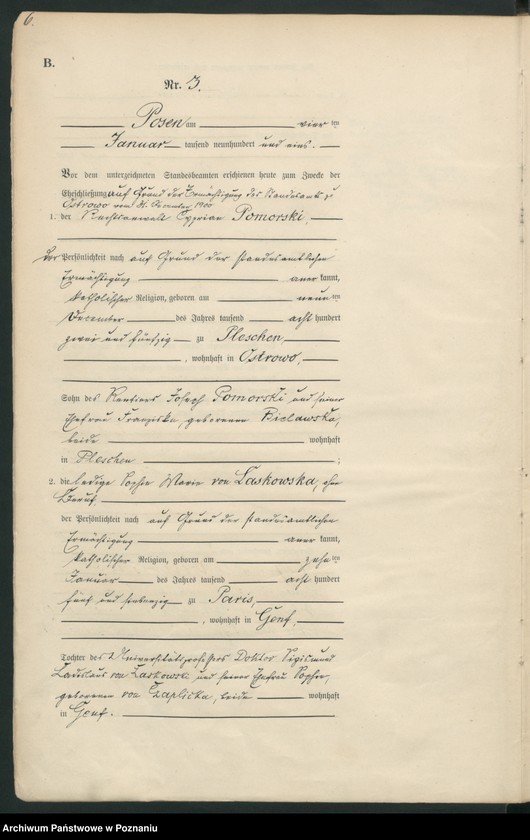 6.
B.
Nr. 3.
Posen am vier ten
Januar tausend neunhundert und eins.
Vor dem unterzeichneten Standesbeamten erschienen heute zum Zweck der
Eheschließung auf Grund der Ermächtigung des Standesamts zu
Ostrowo vom 31. Dezember 1900
1. der Rechtsanwalt Cyprian Pomorski,
der Persönlichkeit nach auf Grund der standesamtlichen
Ermächtigung anerkannt,
katholischer Religion, geboren am neun ten
December des Jahres tausend acht hundert
zwei und fünfzig zu Pleschen
, wohnhaft in Ostrowo,
Sohn des Rentiers Joseph Pomorski und seiner
Ehefrau Franziska, geborenen Bielawska,
beide wohnhaft
in Pleschen ;
2. die ledige Sophie Marie von Laskowska, ohne
Beruf,
der Persönlichkeit nach auf Grund der standesamtlichen
Ermächtigung anerkannt,
katholischer Religion, geboren am zehn ten
Januar des Jahres tausend acht hundert
fünf und siebenzig zu Paris,
, wohnhaft in Genf,
Tochter des Universitätsprofessors Doktor Sigismund
Ladislaus von Laskowski und seiner Ehefrau Sophie,
geborenen von Czaplicka, beide wohnhaft
in Genf.
Archiwum Państwowe w Poznaniu